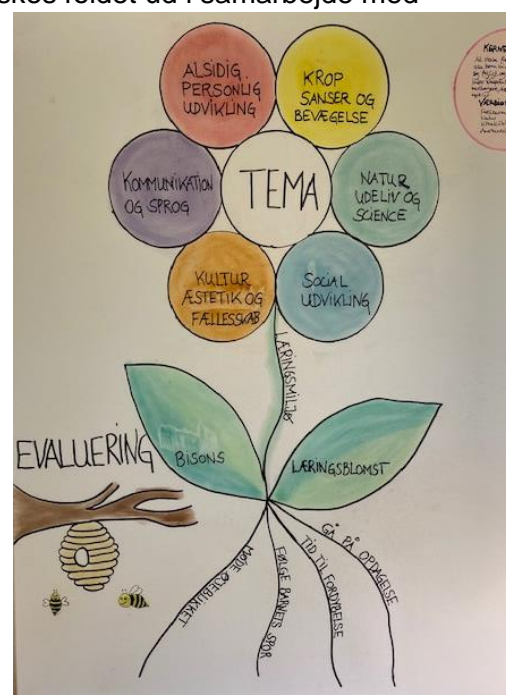 skes foldet ud i samarbejde med
ALSIDIG
PERSONLIG
UDVIKLING
KROP
SANSER OG
BEVÆGELSE
KOMMUNIKATION
OG SPROG
TEMA
NATUR
UDELIV OG
SCIENCE
KULTUR
ÆSTETIK OG
FÆLLESSKAB
SOCIAL
UDVIKLING
LÆRINGSMILJØ
EVALUERING
BISONS
LÆRINGSBLOMST
MØDE ØJEBLIKKET
FØLGE BARNETS SPOR
TID TIL FORDYBELSE
GÅ PÅ OPDAGELSE